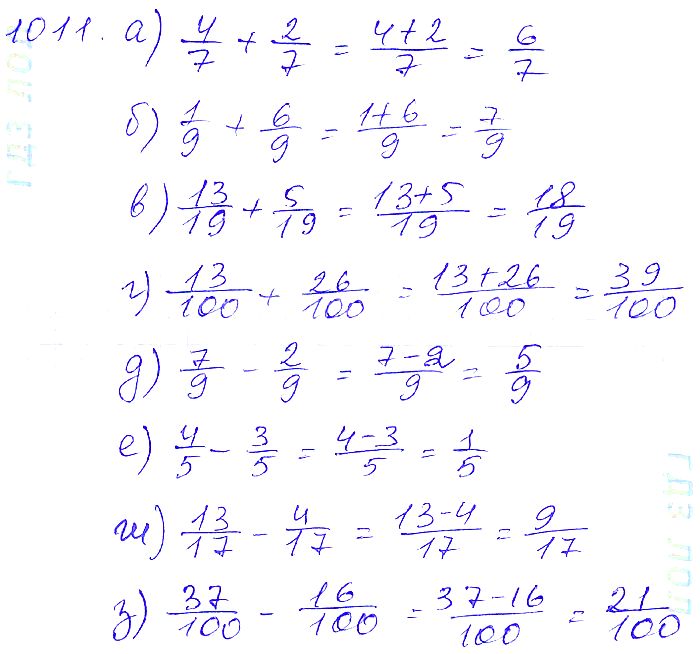 1011. а) 4/7 + 2/7 = 4+2/7 = 6/7
б) 1/9 + 6/9 = 1+6/9 = 7/9
в) 13/19 + 5/19 = 13+5/19 = 18/19
г) 13/100 + 26/100 = 13+26/100 = 39/100
д) 7/9 - 2/9 = 7-2/9 = 5/9
е) 4/5 - 3/5 = 4-3/5 = 1/5
ж) 13/17 - 4/17 = 13-4/17 = 9/17
з) 37/100 - 16/100 = 37-16/100 = 21/100